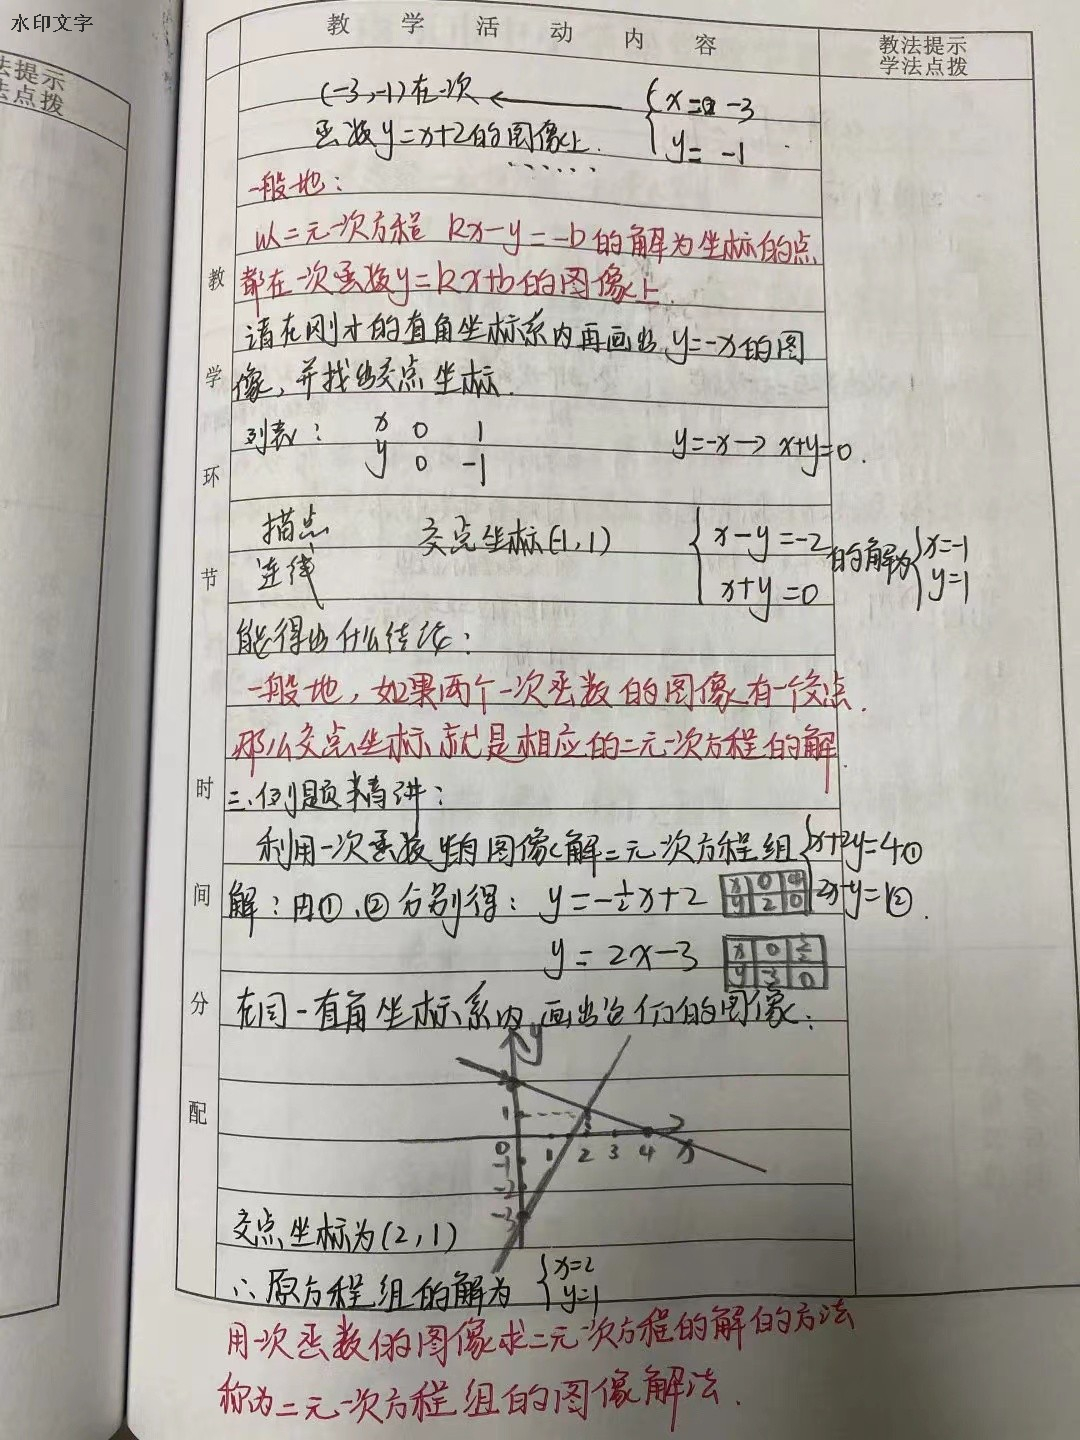 水印文字
法提示
法点拨
教学活动内容
教法提示
学法点拨
(-3,-1)在一次 ← { x= -3
函数y=x+2的图像上. y= -1
一般地:
以二元一次方程 kx-y=-b的解为坐标的点
都在一次函数y=kx+b的图像上.
请在刚才的直角坐标系内再画出y=-x的图
像,并找出交点坐标.
列表: x 0 1
y 0 -1
y=-x→x+y=0.
描点
连线
交点坐标(-1,1)
{ x-y=-2
x+y=0
的解为{ x=-1
y=1
能得出什么结论:
一般地,如果两个一次函数的图像有一个交点.
那么交点坐标就是相应的二元一次方程的解.
三.例题精讲:
利用一次函数的图像解二元一次方程组{ x+2y=4①
2x-y=1②.
解:由①、②分别得: y=-½x+2
x 0 4
y 2 0
y=2x-3
x 0 3/2
y -3 0
在同一直角坐标系内画出它们的图像:
y
2
1
0 1 2 3 4 x
-1
-2
-3
交点坐标为(2,1)
∴原方程组的解为 { x=2
y=1
用一次函数的图像求二元一次方程的解的方法
称为二元一次方程组的图像解法.
教学环节时间分配